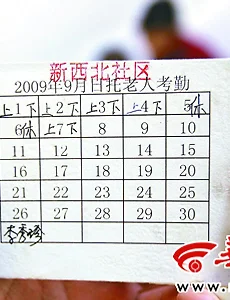 新西北社区
2009年9月日托老人考勤
上1下 上2下 上3下 上4下 5休
6休 上7下 8 9 10
11 12 13 14 15
16 17 18 19 20
21 22 23 24 25
26 27 28 29 30
李秀珍